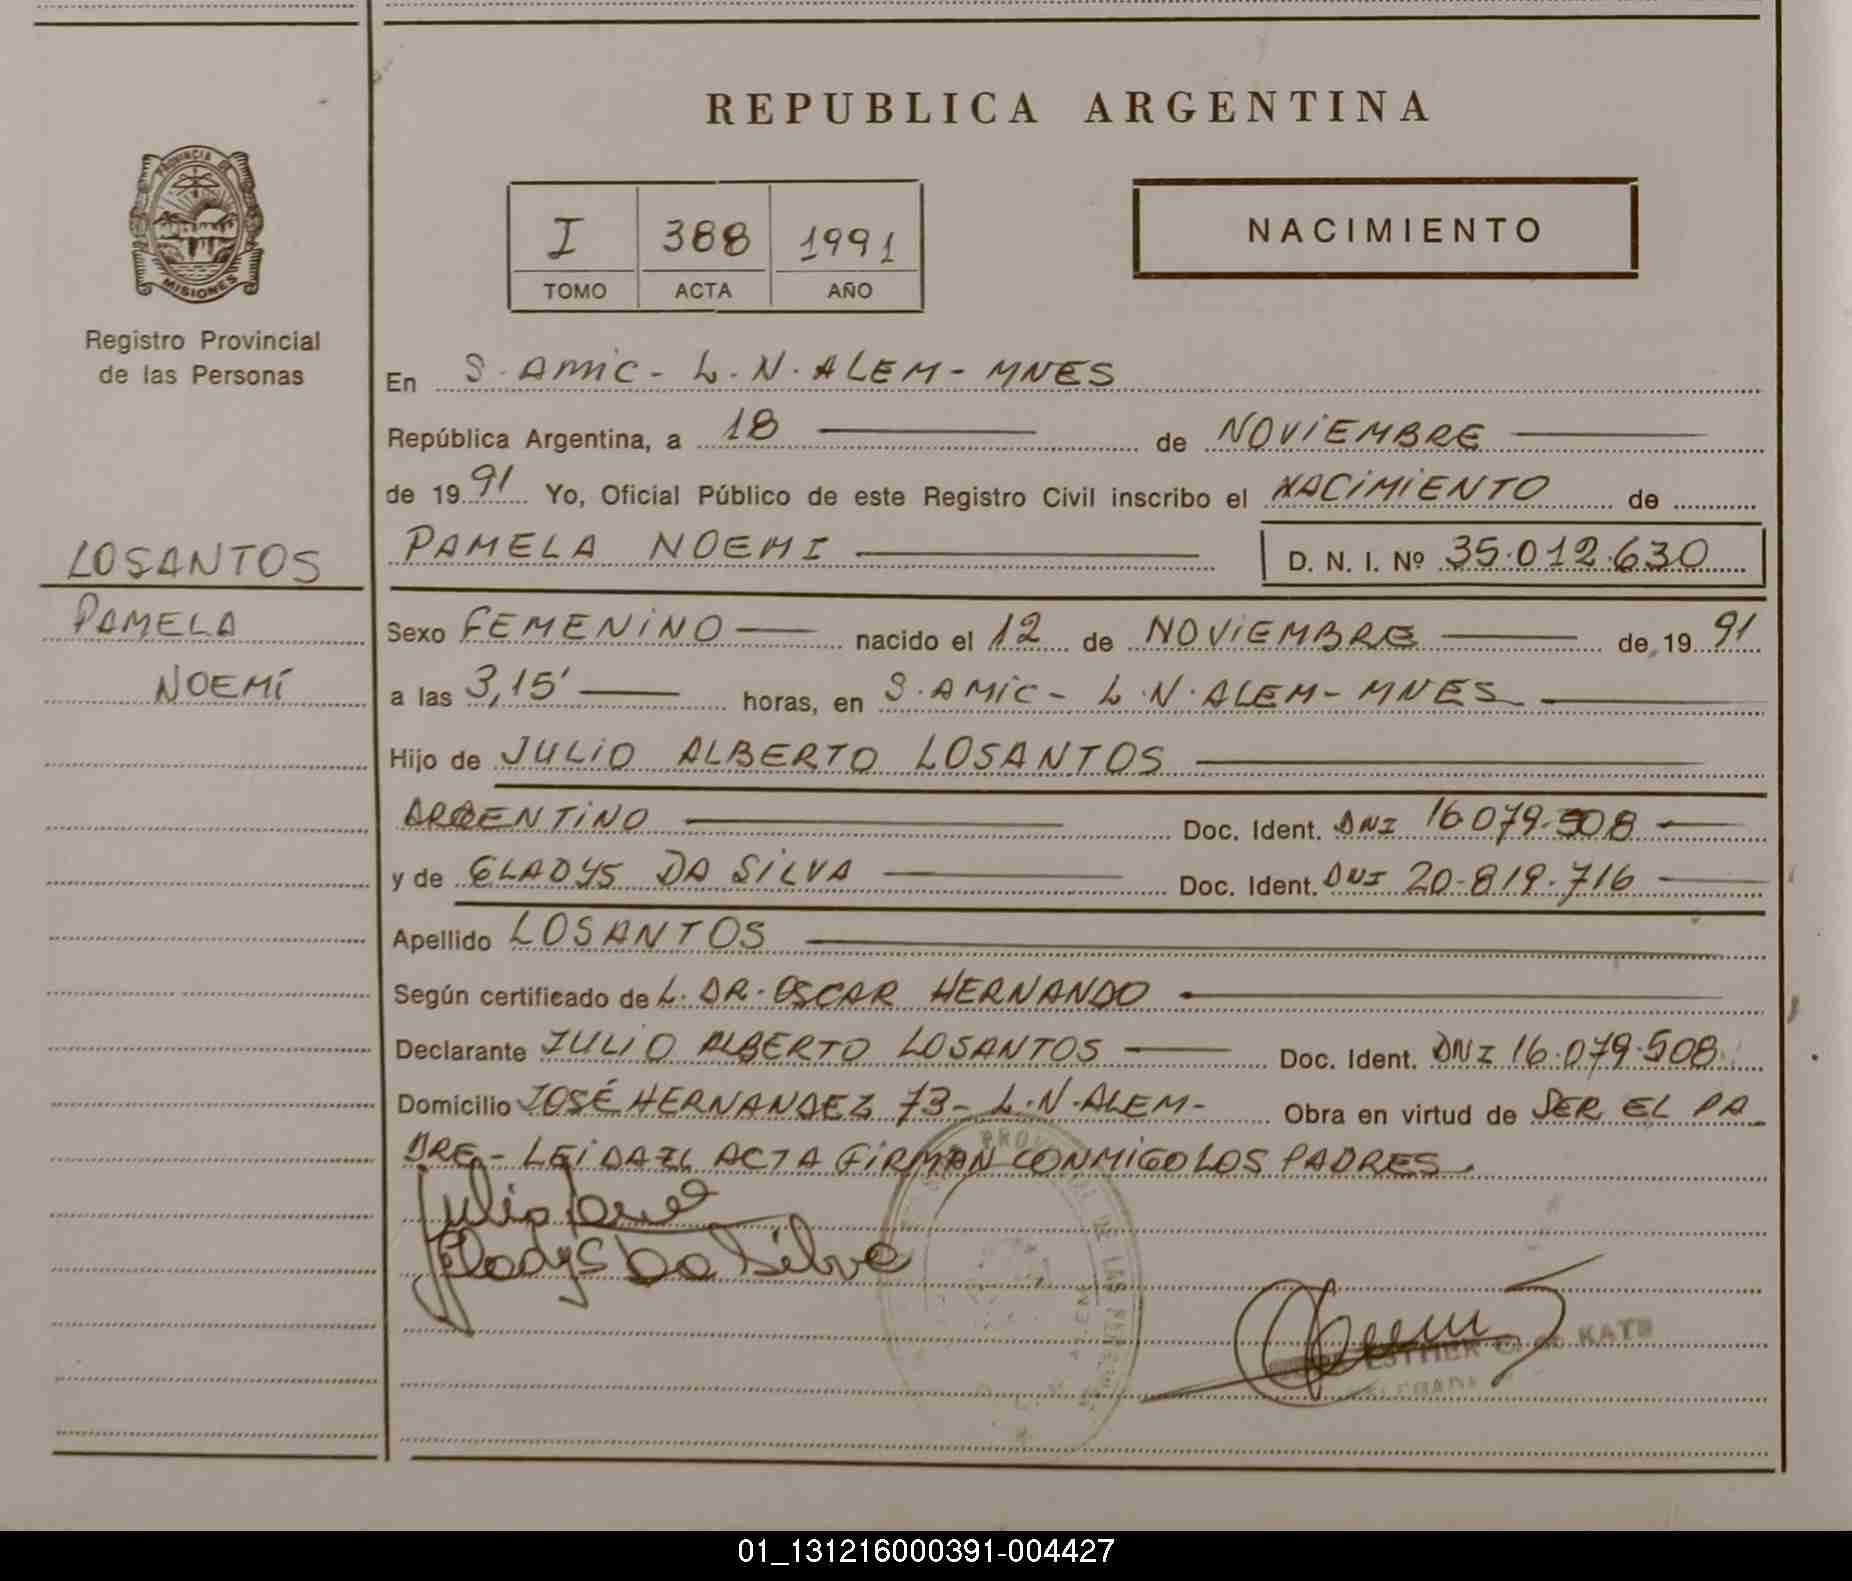 REPUBLICA ARGENTINA
PROVINCIA DE
MISIONES
Registro Provincial
de las Personas
I 388 1991
TOMO ACTA AÑO
NACIMIENTO
En S. AMIC - L. N. ALEM - MNES
República Argentina, a 18 de NOVIEMBRE
de 1991 Yo, Oficial Público de este Registro Civil inscribo el NACIMIENTO de
PAMELA NOEMI D. N. I. Nº 35.012.630
LOSANTOS
PAMELA
NOEMÍ
Sexo FEMENINO nacido el 12 de NOVIEMBRE de 1991
a las 3,15' horas, en S. AMIC - L. N. ALEM - MNES
Hijo de JULIO ALBERTO LOSANTOS
ARGENTINO Doc. Ident. DNI 16.079.508
y de GLADYS DA SILVA Doc. Ident. DNI 20.819.716
Apellido LOSANTOS
Según certificado de L. DR. OSCAR HERNANDO
Declarante JULIO ALBERTO LOSANTOS Doc. Ident. DNI 16.079.508
Domicilio JOSÉ HERNANDEZ 73 - L. N. ALEM - Obra en virtud de SER EL PA
DRE - LEIDA EL ACTA FIRMAN CONMIGO LOS PADRES.
Julio
Gladys Da Silva
ESTHER KATZ
01_131216000391-004427